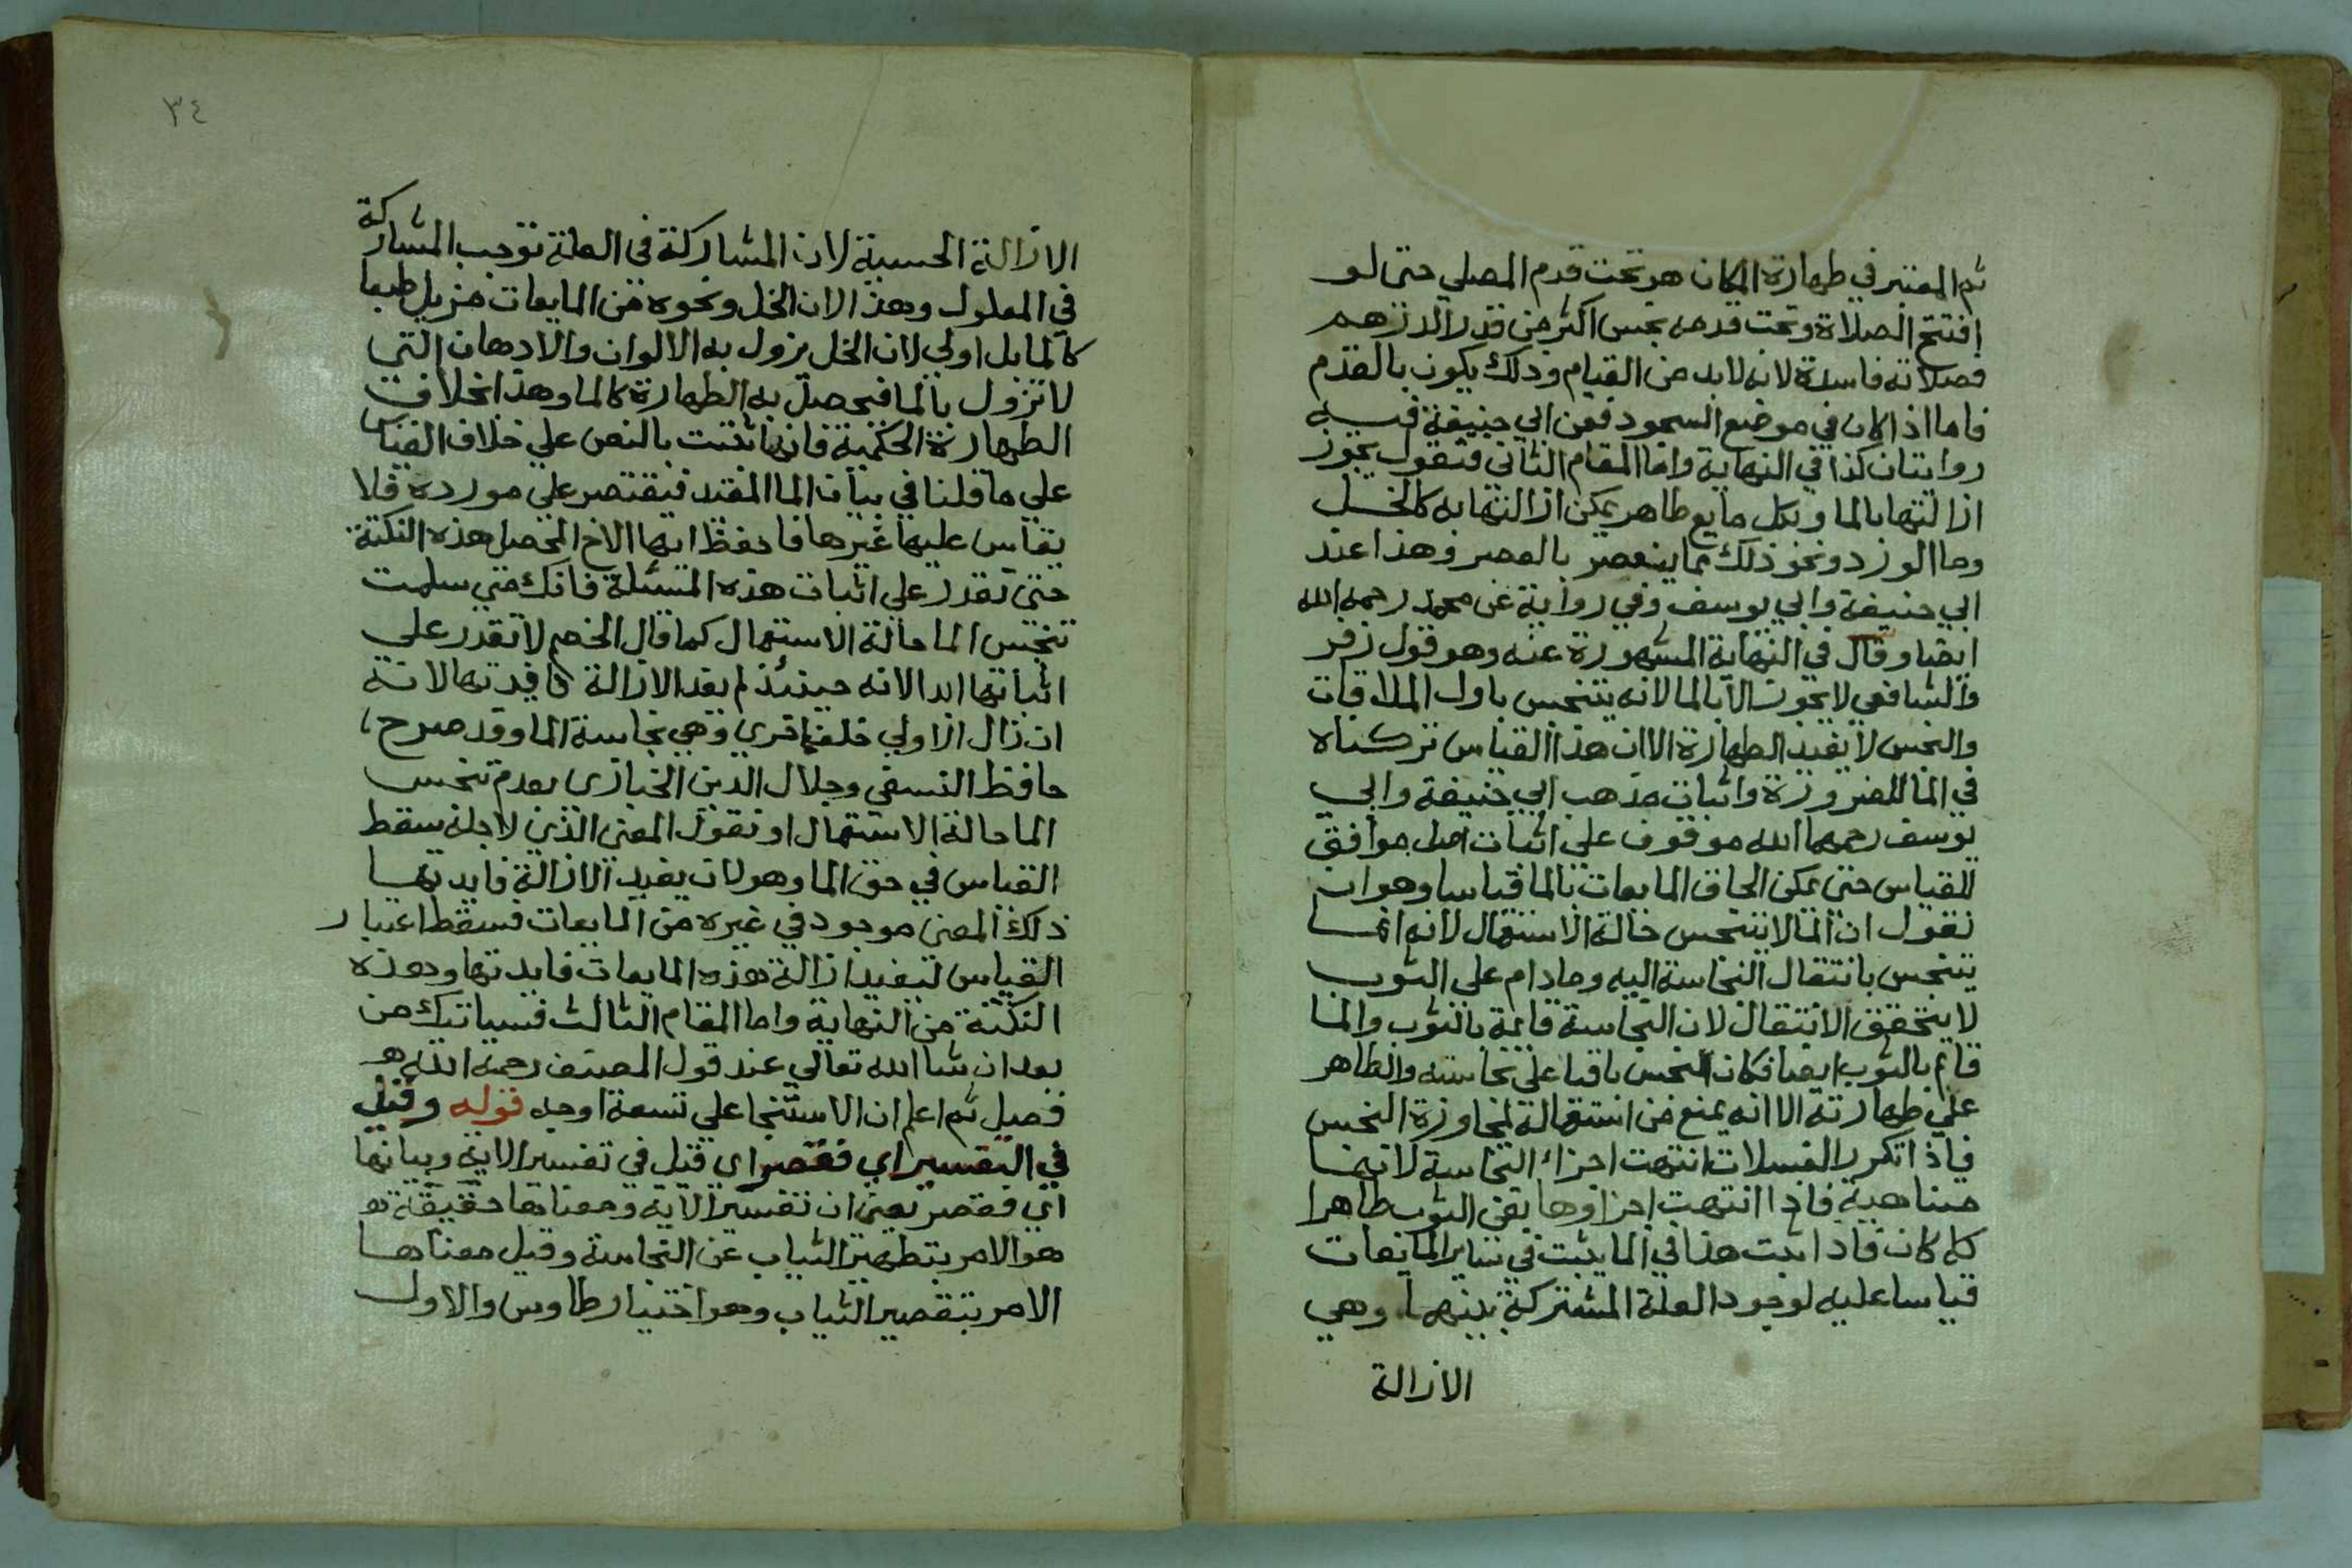 ثم المعتبر في طهارة المكان هو تحت قدم المصلي حتى لو
إفتتح الصلاة وتحت قدمه نجس اكثر من قدر الدرهم
فصلاته فاسدة لانه لابد من القيام وذلك يكون بالقدم
فاما اذا كان في موضع السجود فعن ابي حنيفة فيه
روايتان كذا في النهاية واما المقام الثاني فنقول يجوز
ازالتها بالما وبكل مايع طاهر يمكن ازالتها به كالخل
وما الورد ونحو ذلك مما ينعصر بالعصر وهذا عند
ابي حنيفة وابي يوسف وفي رواية عن محمد رحمه الله
ايضا وقال في النهاية المشهورة عنه وهو قول زفر
والشافعي لا يجوز الا بالما لانه يتنجس باول الملاقات
والنجس لا يفيد الطهارة الا ان هذا القياس تركناه
في الما للضرورة واثبات مذهب ابي حنيفة وابي
يوسف رحمهما الله موقوف على اثبات اصل موافق
للقياس حتى يمكن الحاق المايعات بالما قياسا وهو ان
نقول ان الما لا يتنجس حالة الاستعمال لانه انما
يتنجس بانتقال النجاسة اليه وما دام على الثوب
لا يتحقق الانتقال لان النجاسة قايمة بالثوب والما
قايم بالثوب ايضا فكان النجس باقيا على نجاسته والطاهر
على طهارته الا انه يمنع من استعماله لمجاورة النجس
فاذا تكرر الغسلات انتهت اجزاء النجاسة لانها
متناهية فاذا انتهت اجزاوها بقى الثوب طاهرا
كما كان فاذا ثبت هذا في الما يثبت في ساير المايعات
قياسا عليه لوجود العلة المشتركة بينهما وهي
الازالة
٣٤
الازالة الحسية لان المشاركة في العلة توجب المشاركة
في المعلول وهذا لان الخل ونحوه من المايعات مزيل طبعا
كالما بل اولي لان الخل يزول به الالوان والادهان التي
لا تزول بالما فيحصل به الطهارة كالما وهذا بخلاف
الطهارة الحكمية فانها ثتبت بالنص علي خلاف القياس
علي ما قلنا في بيان الما المقيد فيقتصر علي مورده فلا
يقاس عليها غيرها فاحفظ ايها الاخ المحصل هذه النكتة
حتى تقدر على اثبات هذه المسئلة فانك متى سلمت
تنجس الما حالة الاستعمال كما قال الخصم لا تقدر علي
اثباتها ابدا لانه حينئذ لم يفد الازالة فايدتها لانه
ان زال الاولي خلفها اخري وهي نجاسة الما وقد صرح
حافظ النسفي وجلال الدين الخبازي بعدم تنجس
الما حالة الاستعمال او نقول المعنى الذي لاجله سقط
القياس في حق الما وهو لان يفيد الازالة فايدتها
ذلك المعنى موجود في غيره من المايعات فسقط اعتبار
القياس لتفيد ازالة هذه المايعات فايدتها وهذه
النكتة من النهاية واما المقام الثالث فسياتيك من
بعد ان شا الله تعالي عند قول المصنف رحمه الله هو
فصيل ثم اعلم ان الاستنجا علي تسعة اوجه قوله وقيل
في التفسير اي فقصر اي قيل في تفسير الاية وبيانها
اي فقصر يعني ان تفسير الاية ومعناها حقيقة هو
هو الامر بتطهير الثياب عن النجاسة وقيل معناها
الامر بتقصير الثياب وهو اختيار طاوس والاول